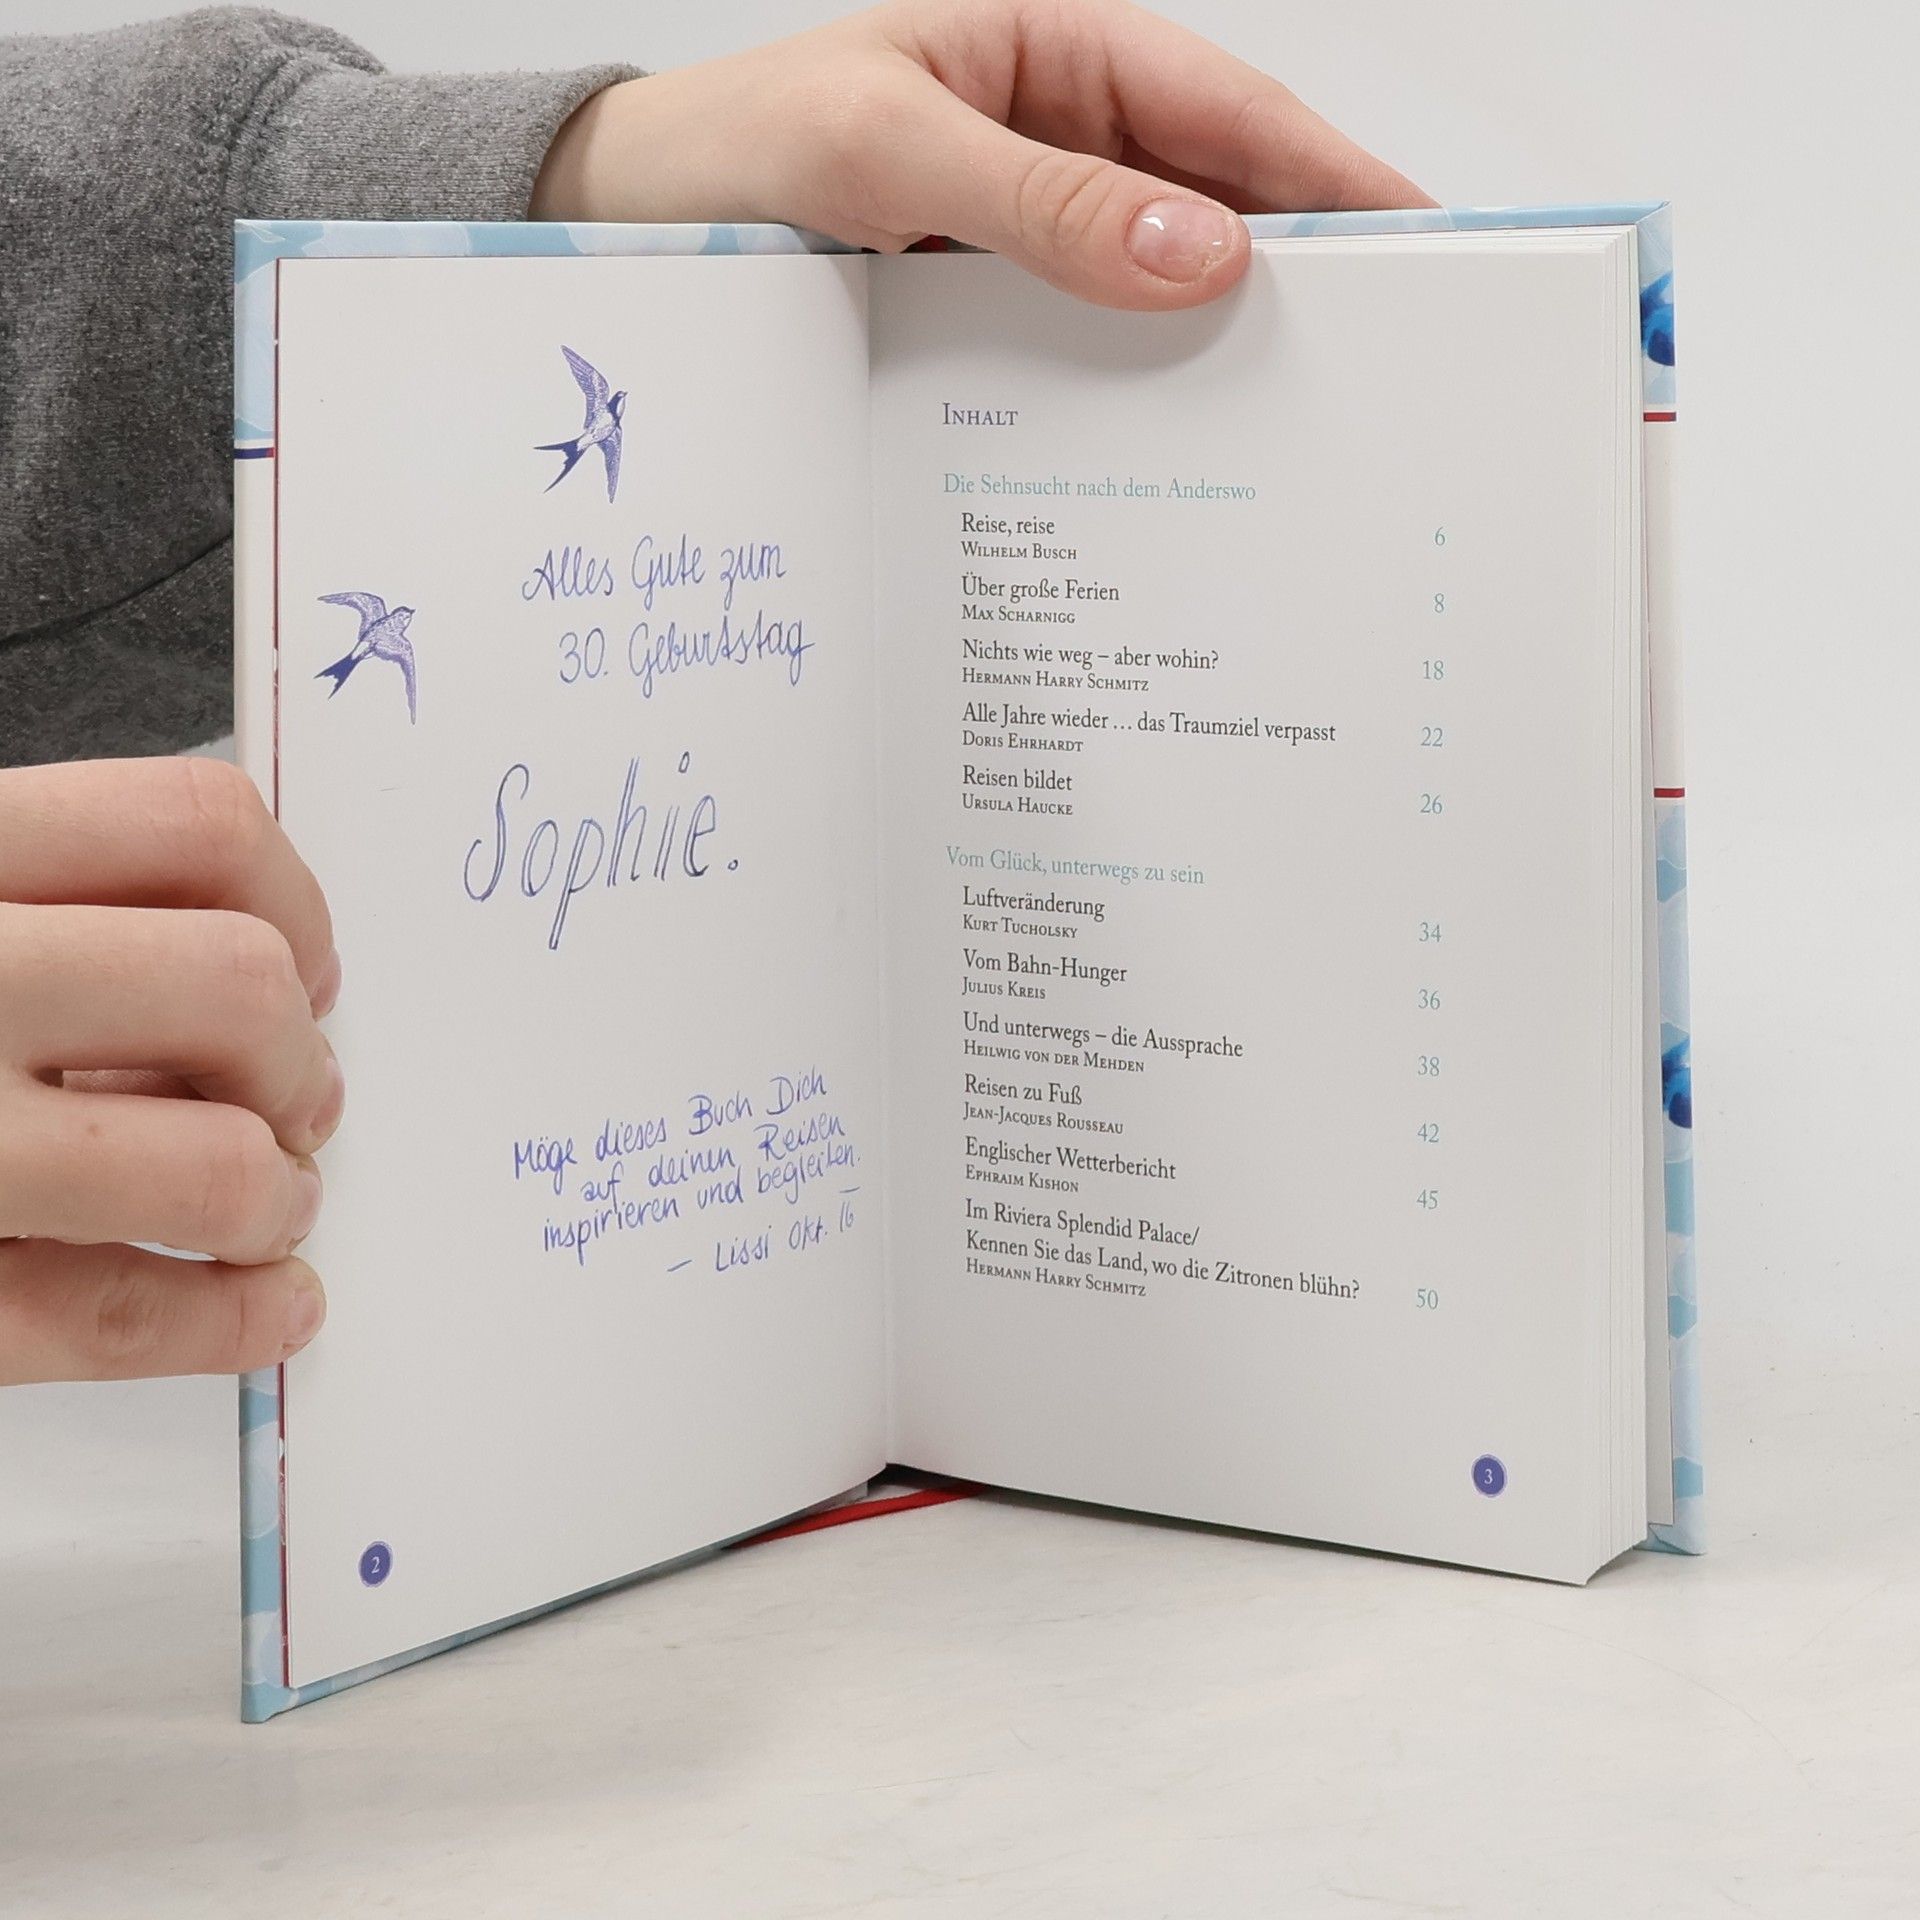 Alles Gute zum
30. Geburtstag
Sophie.
Möge dieses Buch Dich
auf deinen Reisen
inspirieren und begleiten.
– Lissi Okt. 16
2
INHALT
Die Sehnsucht nach dem Anderswo
Reise, reise 6
WILHELM BUSCH
Über große Ferien 8
MAX SCHARNIGG
Nichts wie weg – aber wohin? 18
HERMANN HARRY SCHMITZ
Alle Jahre wieder … das Traumziel verpasst 22
DORIS EHRHARDT
Reisen bildet 26
URSULA HAUCKE
Vom Glück, unterwegs zu sein
Luftveränderung 34
KURT TUCHOLSKY
Vom Bahn-Hunger 36
JULIUS KREIS
Und unterwegs – die Aussprache 38
HEILWIG VON DER MEHDEN
Reisen zu Fuß 42
JEAN-JACQUES ROUSSEAU
Englischer Wetterbericht 45
EPHRAIM KISHON
Im Riviera Splendid Palace/
Kennen Sie das Land, wo die Zitronen blühn? 50
HERMANN HARRY SCHMITZ
3